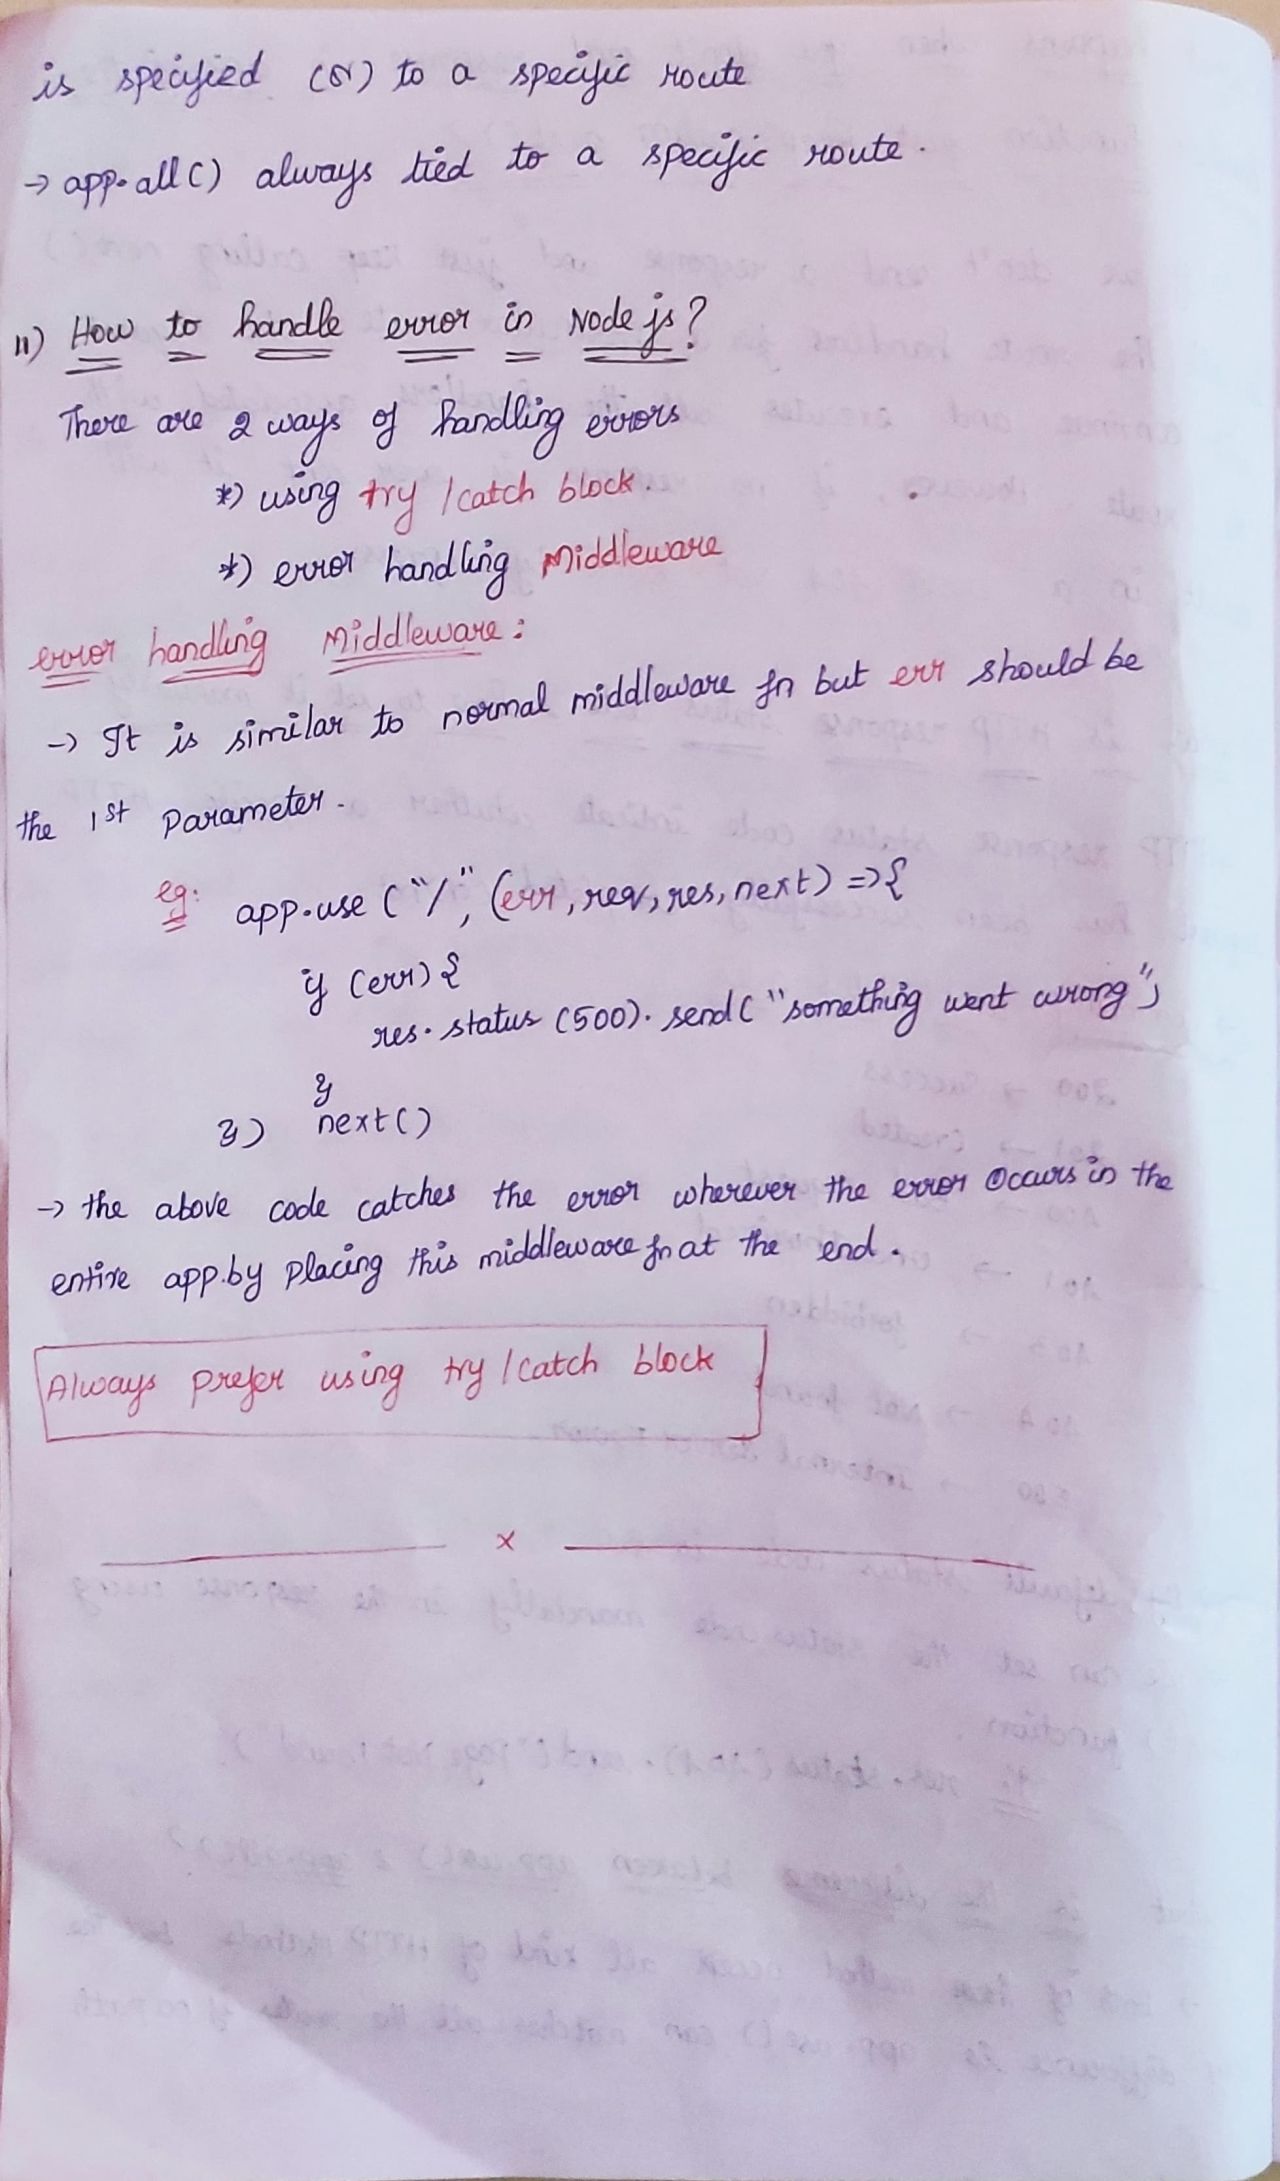 is specified (or) to a specific route
→ app.all() always tied to a specific route.
11) How to handle error in Node js?
There are 2 ways of handling errors
*) using try/catch block.
*) error handling Middleware
error handling Middleware:
→ It is similar to normal middleware fn but err should be
the 1st Parameter.
eg: app.use("/", (err, req, res, next) => {
if (err) {
res.status(500).send("something went wrong");
}
}) next()
→ the above code catches the error wherever the error occurs in the
entire app.by placing this middleware fn at the end.
Always prefer using try/catch block
x